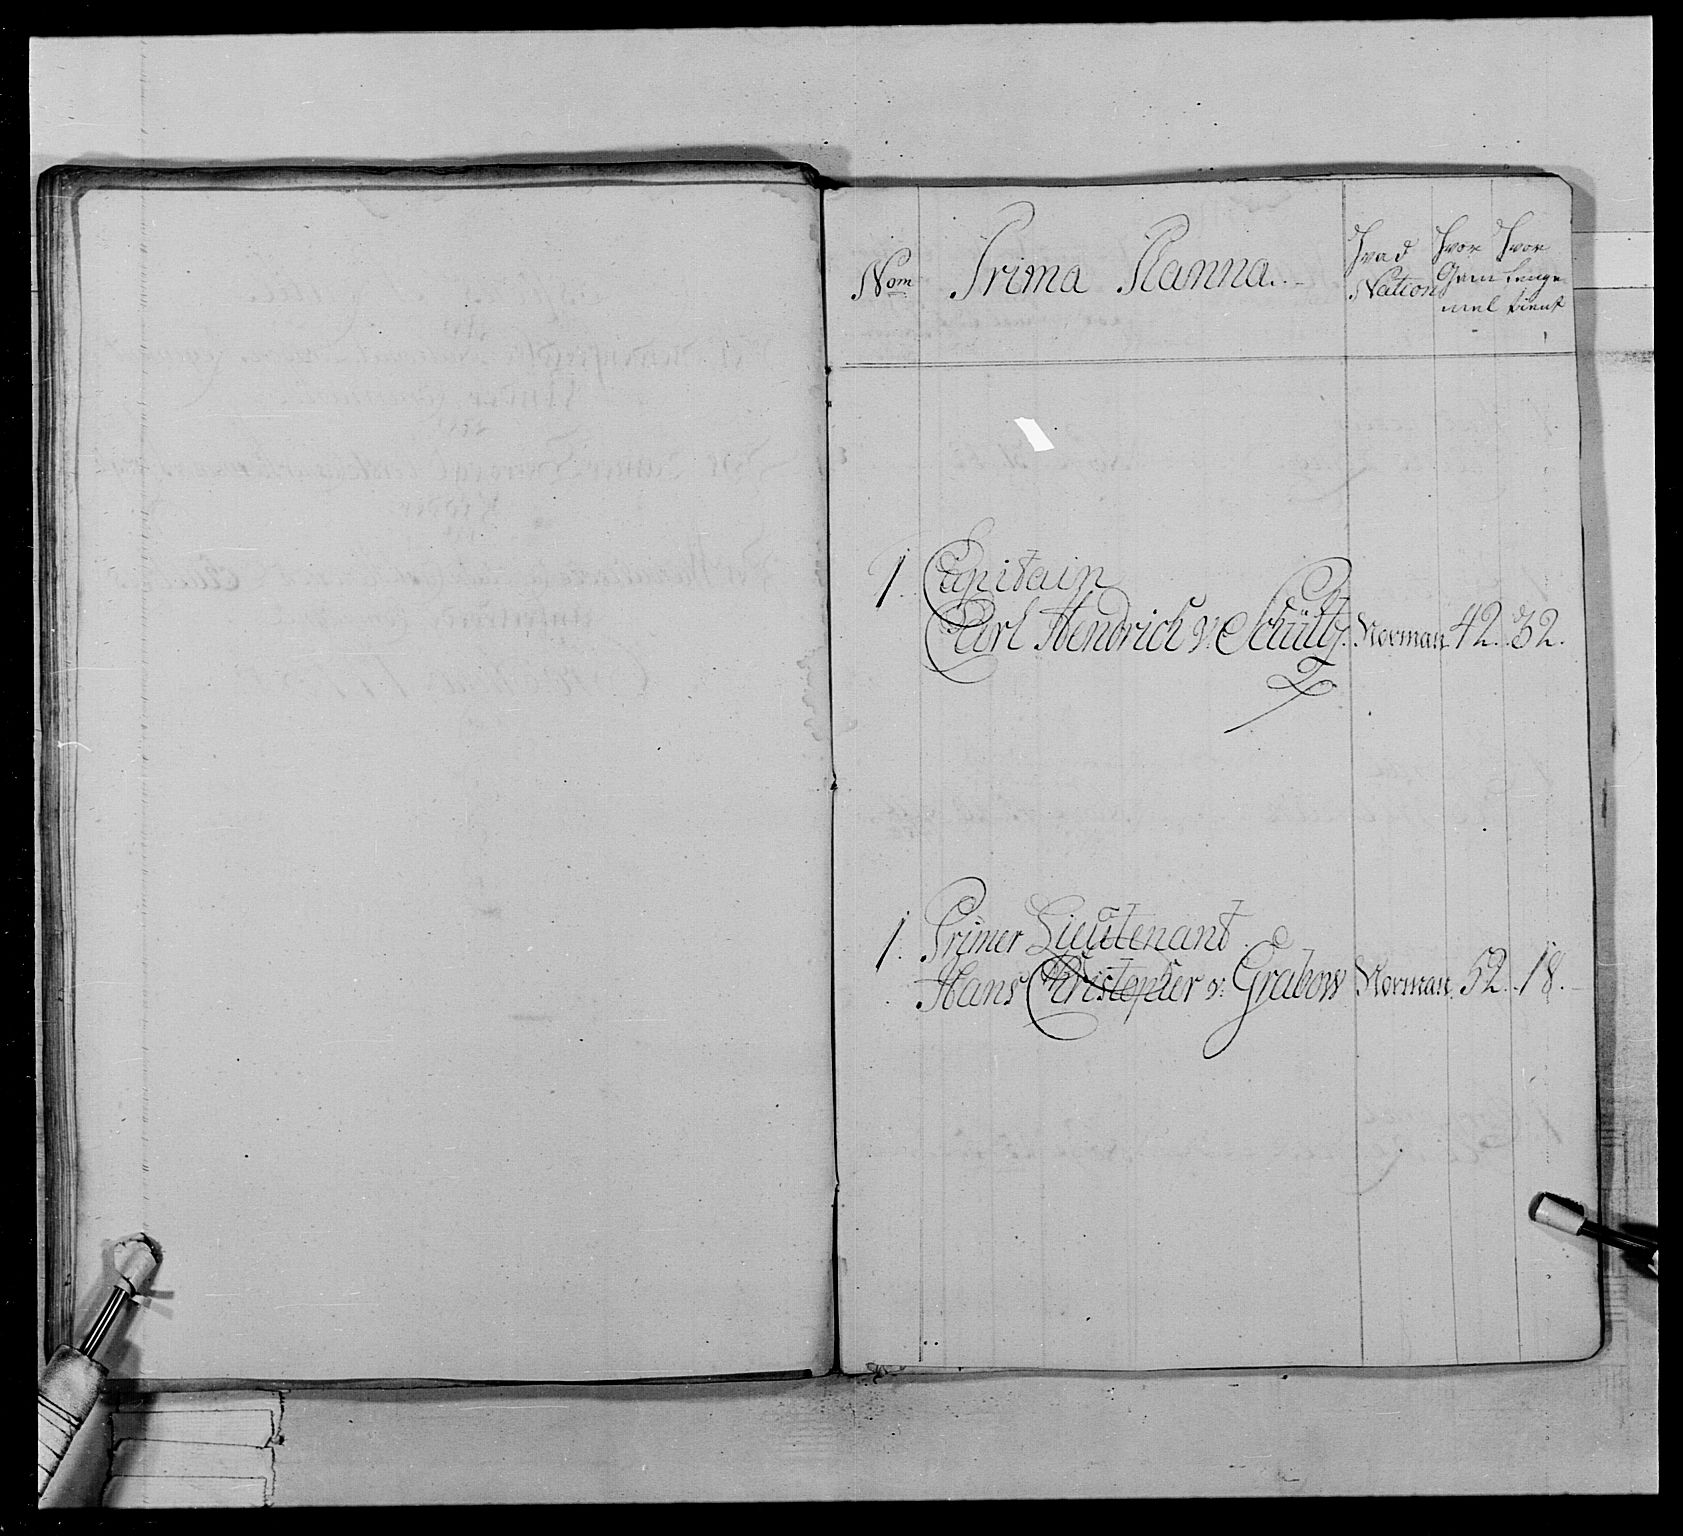 Nom Prima Planna. Hvad Nation Hvor Gammel Hvor lenge tient
1. Capitain
Carl Hendrich v: Schültz. Norman 42. 32.
1. Primer Lieutenant
Hans Christopher v: Grabow Norman. 52. 18.